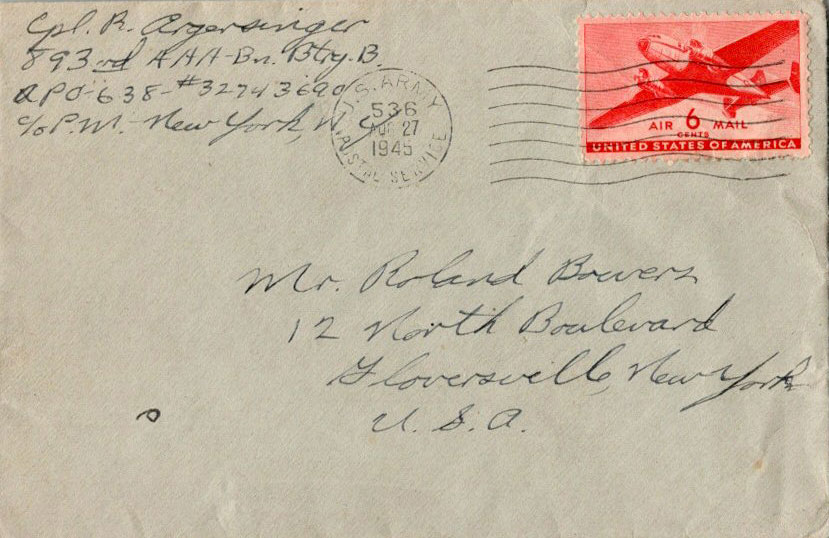 Cpl. R. Argersinger
893rd AAA-Bn. Btry. B.
APO-638-#32743690
c/o P.M.-New York, N.Y.
U.S. ARMY
536
AUG 27
1945
POSTAL SERVICE
AIR 6 MAIL
CENTS
UNITED STATES OF AMERICA
Mr. Roland Bowers
12 North Boulevard
Gloversville, New York
U.S.A.